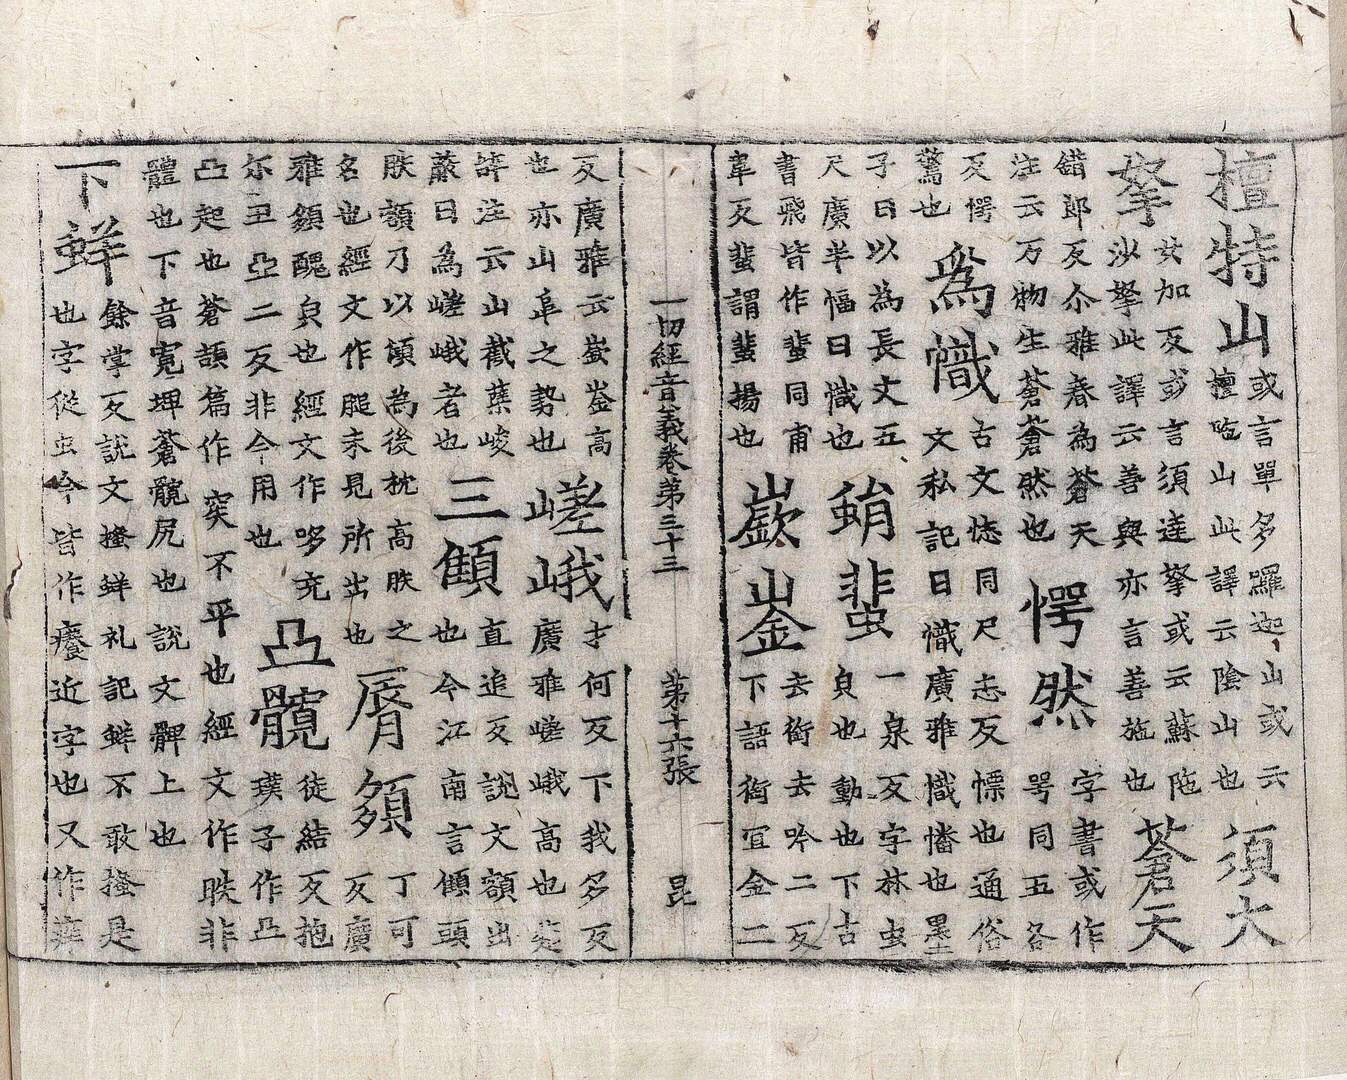 檀特山或言單多羅迦山或云檀陁山此譯云陰山也須大
拏女加反或言須達拏或云蘇陁沙拏此譯云善與亦言善施也蒼天
錯郎反尒雅春為蒼天注云万物生蒼蒼然也愕然字書或作咢同五各
反愕驚也為幟古文㤜同尺志反幖也通俗文私記曰幟廣雅幟幡也墨
子曰以為長丈五尺廣半幅曰幟也蜎蜚一泉反字林虫皃也動也下古
書飛皆作蜚同甫韋反蜚謂蜚揚也嶔崟去銜去吟二反下語銜宜金二
一切經音義卷第三十三 第十六張 昆
反廣雅云嶔崟高也亦山阜之勢也嵯峨才何反下我多反廣雅嵯峨高也楚
辝注云山截嶪峻蔽曰為嵯峨者也三顀直追反說文額出也今江南言顀頭
胅額乃以顀為後枕高胅之名也經文作腿未見所出也脣䫂丁可反廣
雅䫂醜皃也經文作哆充尓丑亞二反非今用也凸髖徒結反抱璞子作凸
凸起也蒼頡篇作突不平也經文作胅非體也下音寬埤蒼髖尻也說文髀上也
下蛘餘掌反說文搔蛘礼記蛘不敢搔是也字從虫今皆作癢近字也又作痒